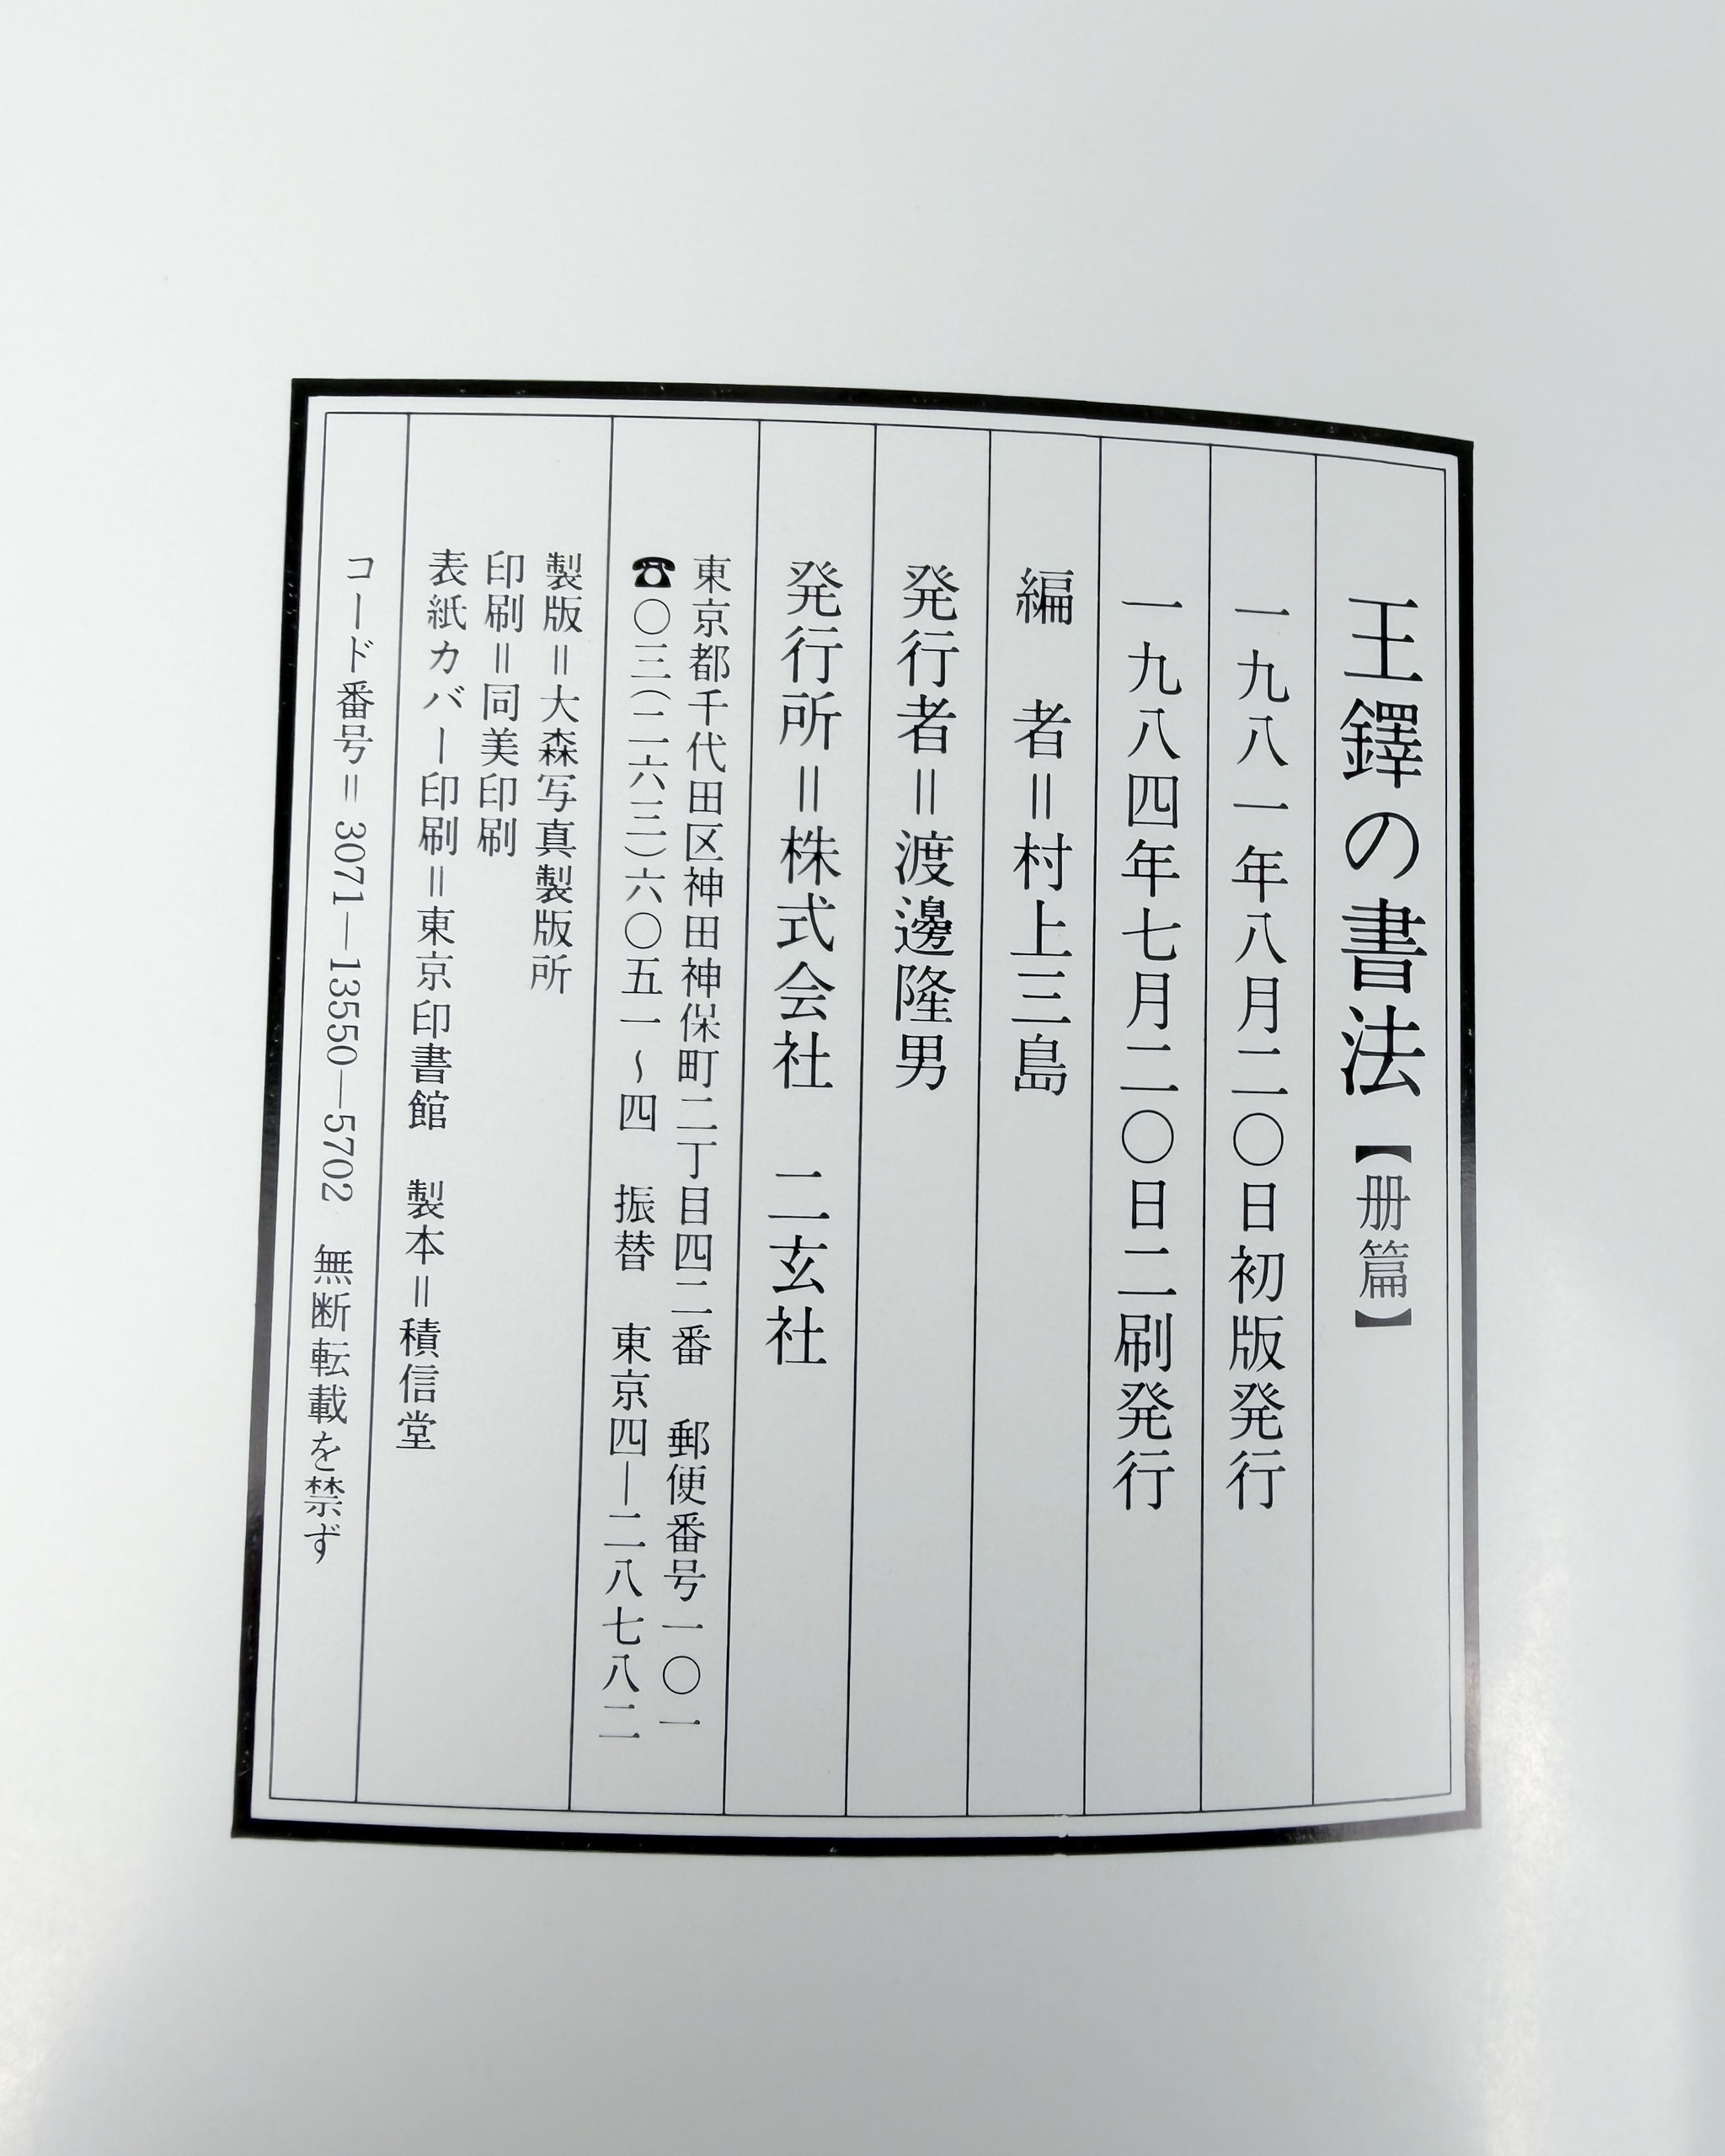 王鐸の書法【册篇】
一九八一年八月二〇日初版発行
一九八四年七月二〇日二刷発行
編　者＝村上三島
発行者＝渡邊隆男
発行所＝株式会社　二玄社
東京都千代田区神田神保町二丁目四二番　郵便番号一〇一
☎〇三(二六三)六〇五一～四　振替　東京四―二八七八二
製版＝大森写真製版所
印刷＝同美印刷
表紙カバー印刷＝東京印書館　製本＝積信堂
コード番号＝3071―13550―5702　無断転載を禁ず